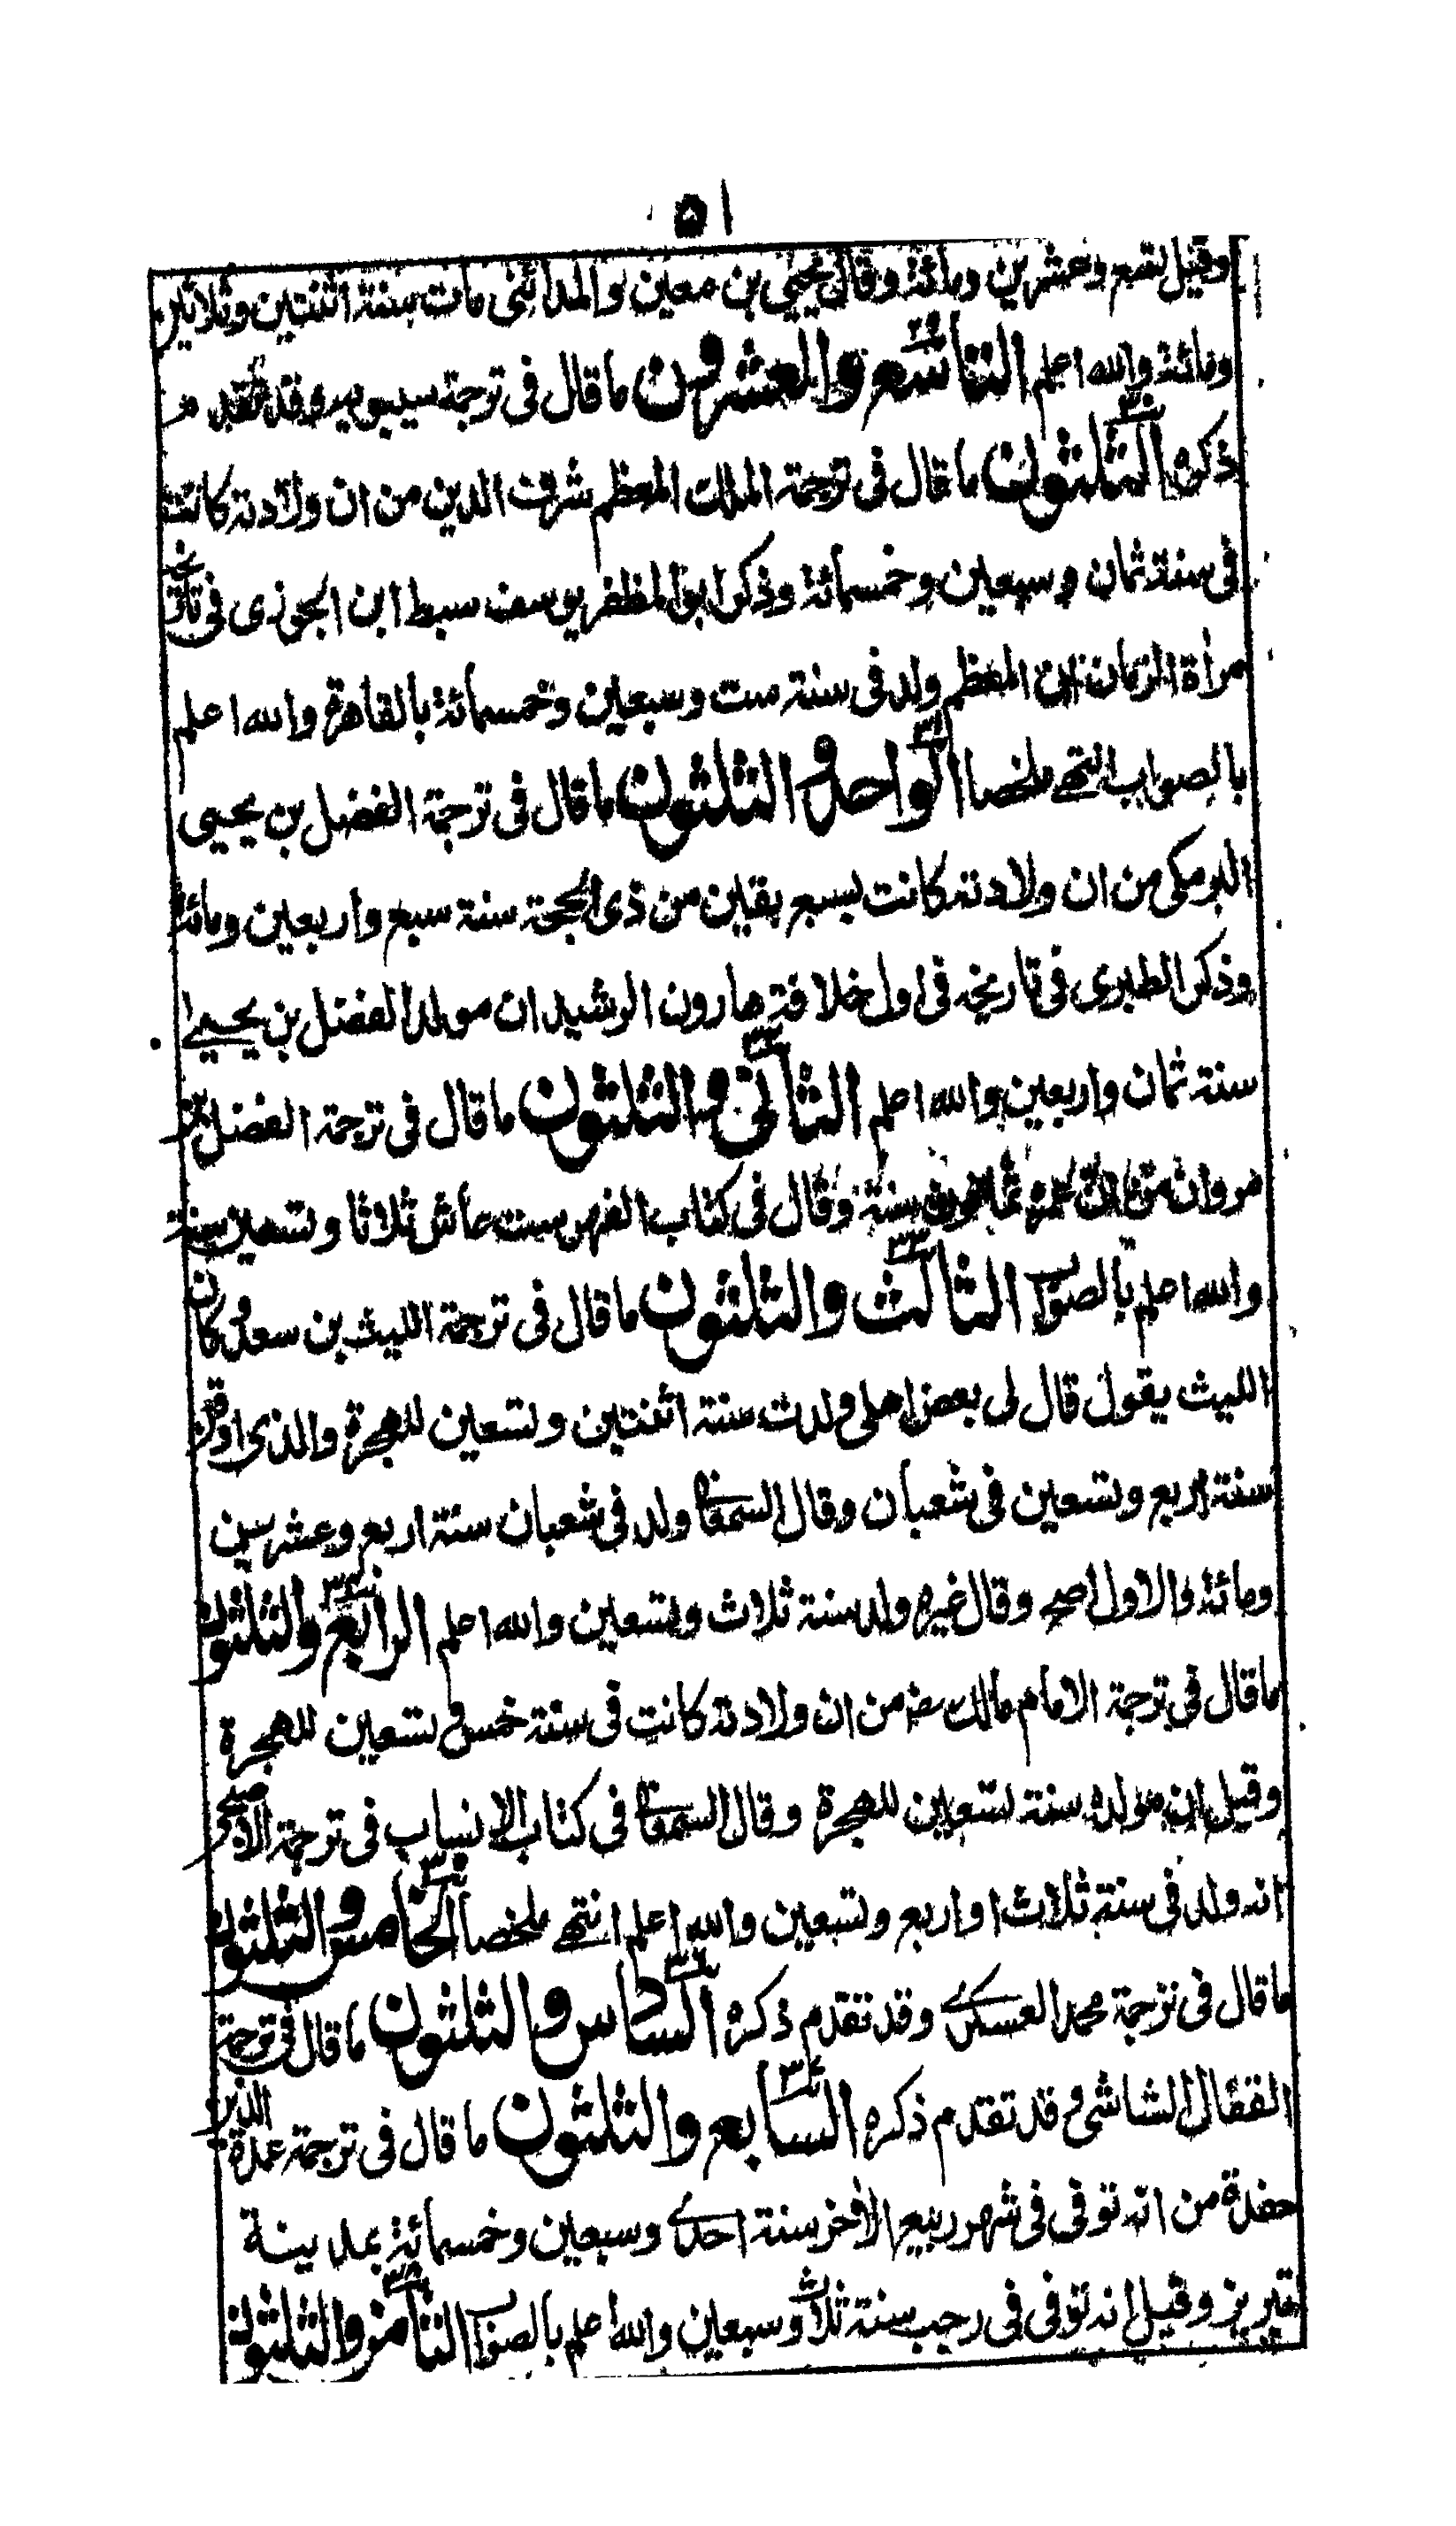 ٥١
وقيل تسع وعشرين ومائة وقال يحيى بن معين والمدائنى مات سنة اثنتين وثلاثين
ومائة والله اعلم التاسع والعشرون ما قال فى ترجمة سيبويه وقد تقدم
ذكره الثلثون ما قال فى ترجمة الملك المعظم شرف الدين من ان ولادته كانت
فى سنة ثمان وسبعين وخمسمائة وذكر ابو المظفر يوسف سبط ابن الجوزى فى تاريخه
مرأة الزمان ان المعظم ولد فى سنة ست وسبعين وخمسمائة بالقاهرة والله اعلم
بالصواب انتهى ملخصا الواحد والثلثون ما قال فى ترجمة الفضل بن يحيى
البرمكى من ان ولادته كانت لسبع بقين من ذى الحجة سنة سبع واربعين ومائة
وذكر الطبرى فى تاريخه فى اول خلافة هارون الرشيد ان مولد الفضل بن يحيى
سنة ثمان واربعين والله اعلم الثانى والثلثون ٣٢ ما قال فى ترجمة الفضل بن
مروان من ان عمره ثمانون سنة وقال فى كتاب الفهرست عاش ثلاثا وتسعين سنة
والله اعلم بالصواب الثالث والثلثون ٣٣ ما قال فى ترجمة الليث بن سعد وكان
الليث يقول قال لى بعض اهلى ولدت سنة اثنتين وتسعين للهجرة والذى اوقن
سنة اربع وتسعين فى شعبان وقال السمعانى ولد فى شعبان سنة اربع وعشرين
ومائة والاول اصح وقال غيره ولد سنة ثلاث وتسعين والله اعلم الرابع والثلثون ٣٤
ما قال فى ترجمة الامام مالك رضـ من ان ولادته كانت فى سنة خمس وتسعين للهجرة
وقيل ان مولده سنة تسعين للهجرة وقال السمعانى فى كتاب الانساب فى ترجمة الاصبحى
انه ولد فى سنة ثلاث او اربع وتسعين والله اعلم انتهى ملخصا الخامس والثلثون
ما قال فى ترجمة محمد العسكرى وقد تقدم ذكره السادس والثلثون ما قال فى ترجمة
القفال الشاشى وقد تقدم ذكره السابع والثلثون ما قال فى ترجمة عمدة الدين
حفدة من انه توفى فى شهر ربيع الاخر سنة احدى وسبعين وخمسمائة بمدينة
تبريز وقيل انه توفى فى رجب سنة ثلاث وسبعين والله اعلم بالصواب الثامن والثلثون